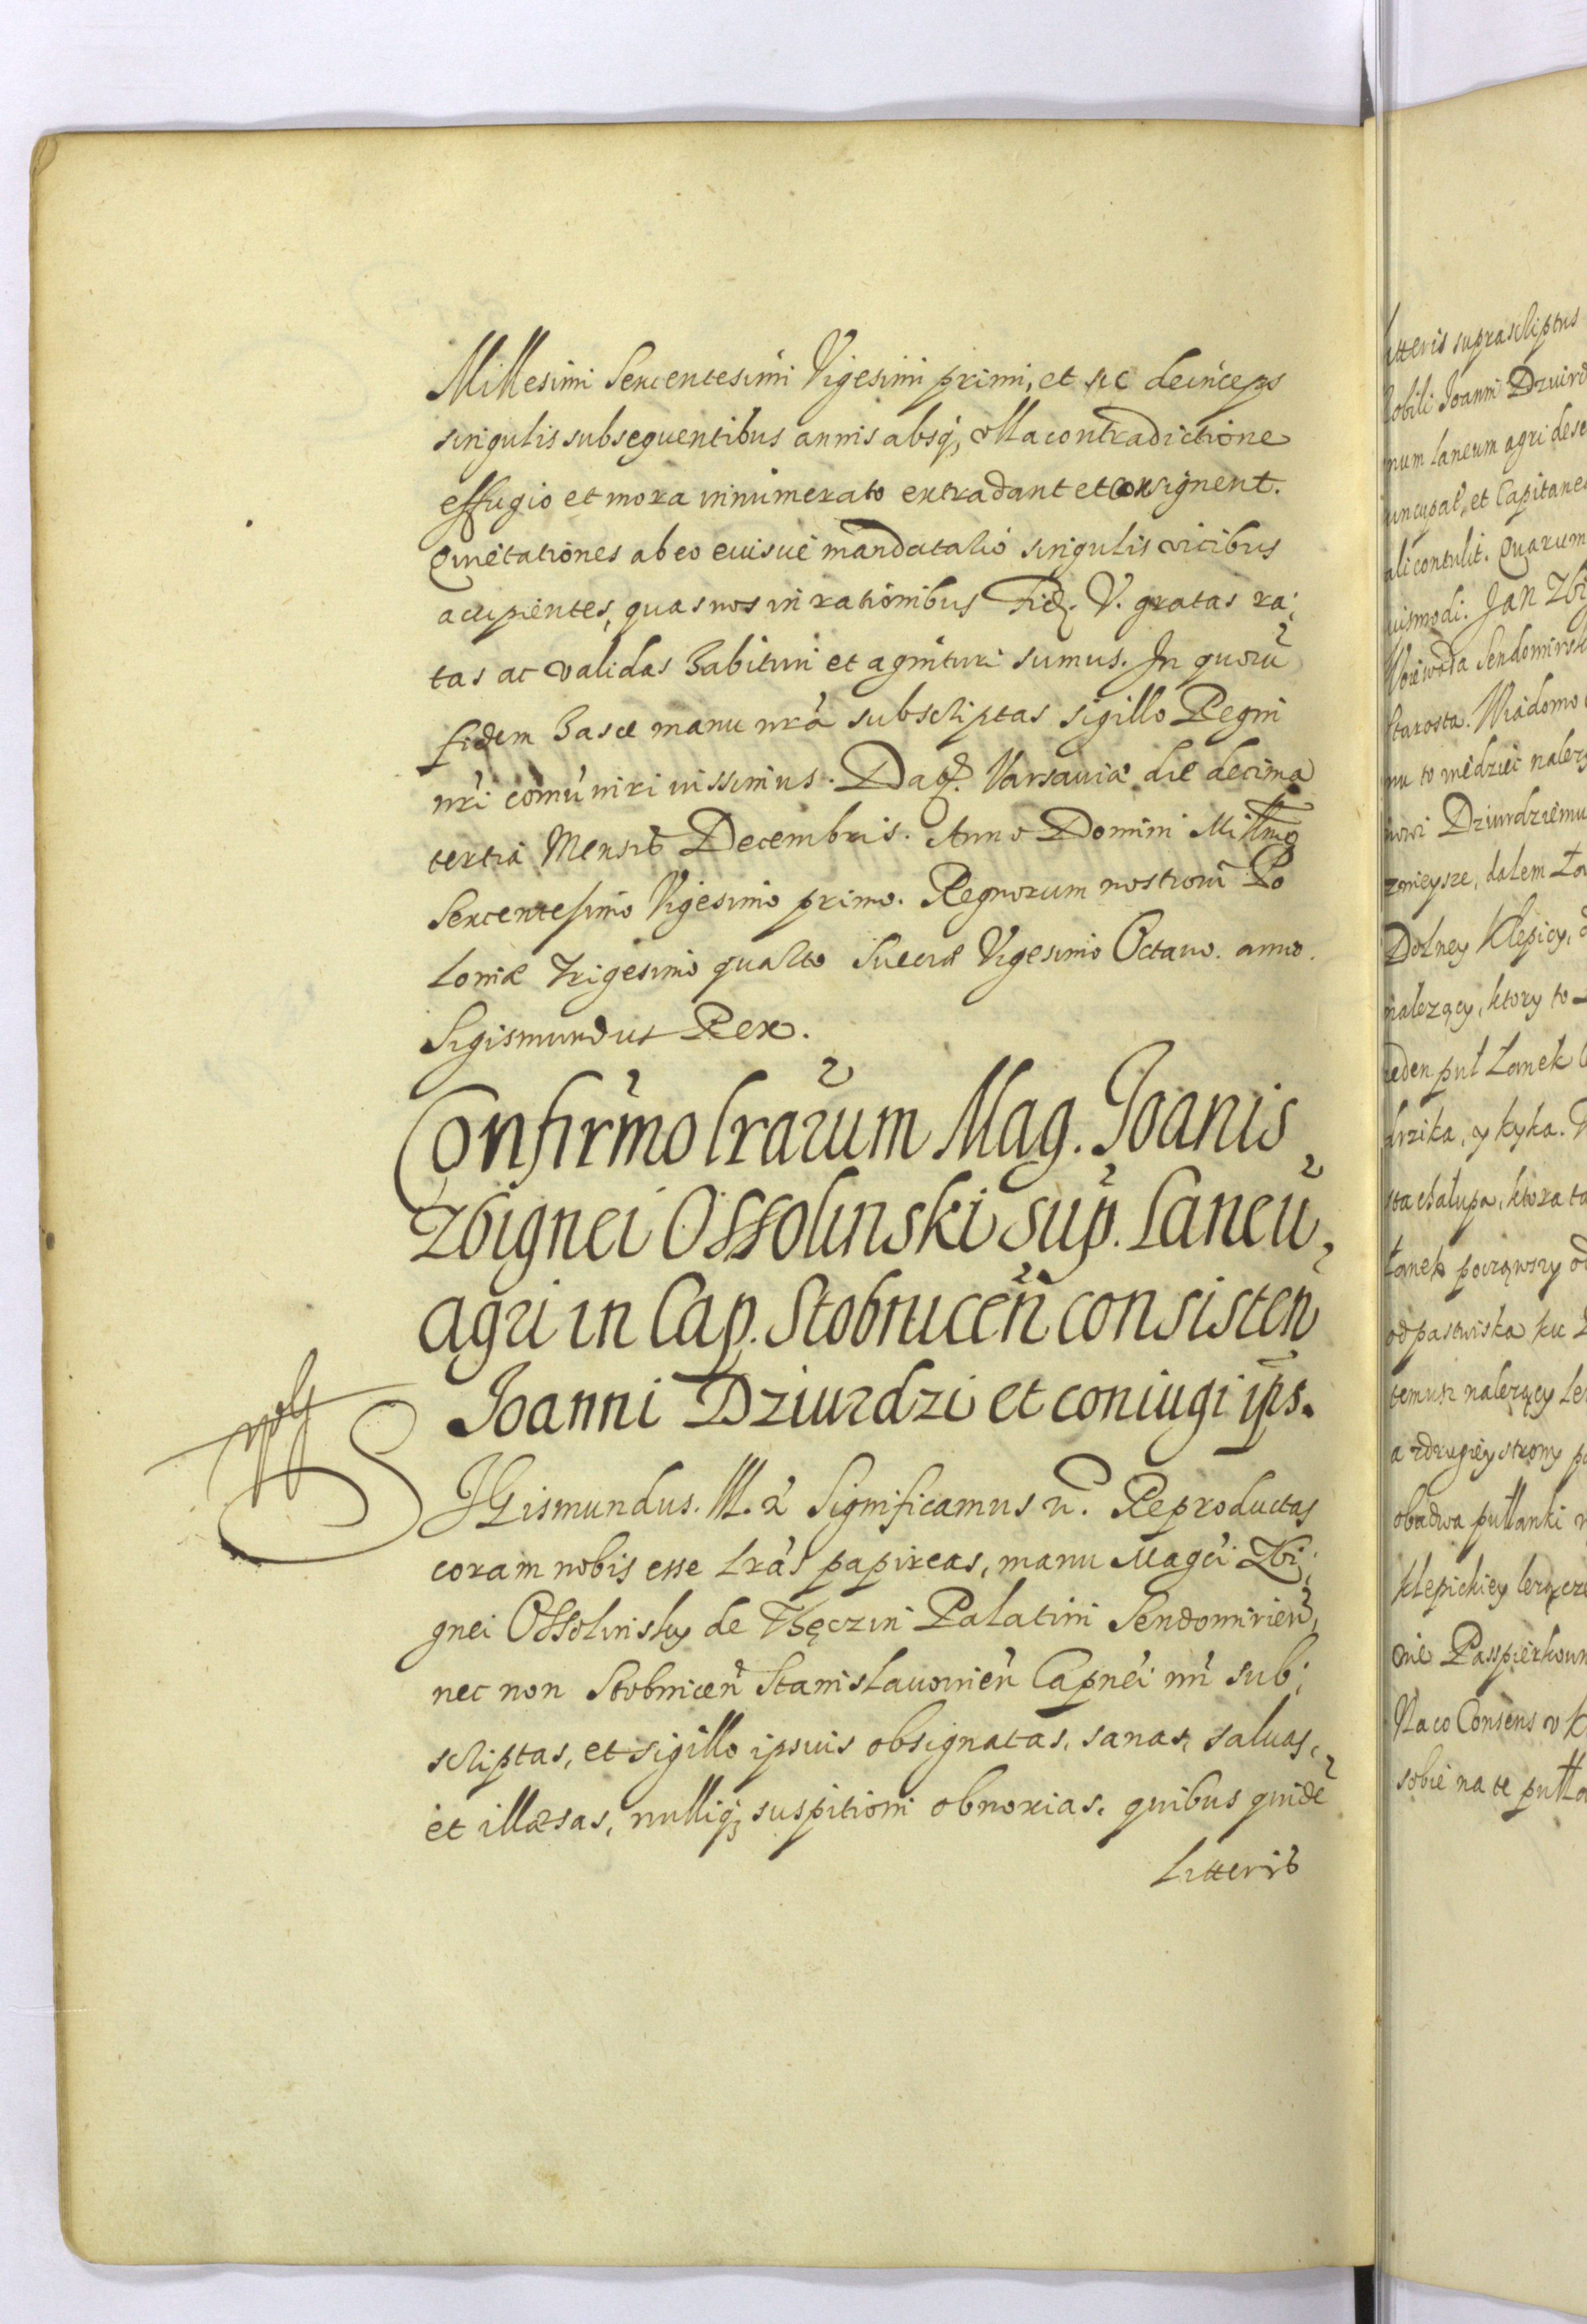 Millesimi Sexcentesimi Vigesimi primi, et sic deinceps
singulis subsequentibus annis absq; ulla contradictione
effugio et mora in numerato extradant et consignent.
Quietationes ab eo eiusue mandatario singulis vicibus
accipientes, quas nos in rationibus Fid. V. gratas ra:
tas ac validas habituri et agnituri sumus. In quorũ
fidem hasce manu nr̃a subscriptas sigillo Regni
nr̃i comũniri iussimus. Dat. Varsauiæ die decima
tertia Mensis Decembris. Anno Domini Millmo
Sexcentesimo Vigesimo primo. Regnorum nostrorũ Po
loniæ Trigesimo quarto Sueciæ Vigesimo Octauo. anno.
Sigismundus Rex.
Confirmõ lr̃arum Mag. Joanis
Zbignei Ossolinski sup. Laneũ
agri in Cap. Stobnicen̄ consisten̄
Joanni Dziurdzi et coniugi ips.
SIGismundus. III. & Significamus &. Reproductas
coram nobis esse lr̃as papireas, manu Magci Zbi:
gnei Ossolinsky de Thęczin Palatini Sendomirien̄,
nec non Stobnicen̄ Stanislauowien̄ Capnei nr̃i sub:
scriptas, et sigillo ipsius obsignatas, sanas, saluas,
et illæsas, nulliq; suspitioni obnoxias. quibus quidẽ
Litteris
litteris suprascriptus
Nobili Joanni Dziurd
num laneum agri dese
nuncupat, et Capitane
ali contulit. Quarum
uismodi. Jan Zbi
Woiewoda Sendomirsk
Starosta. Wiadomo
mu to wiedziec nalezy
nowi Dziurdziemu
zmieysze, dalem Ła
Dolney Klepicy,
nalezący, ktory to
ieden puł Łanek
drzika, y kyka.
sta chałupa, ktora ta
Łanek począwszy od
od pastwiska ku
temusz nalezący le
a zdrugiey strony po
obadwa pułłanki
Klepickiey leżącze
nie Passpierkown
Na co Consens v
sobie na te pułła